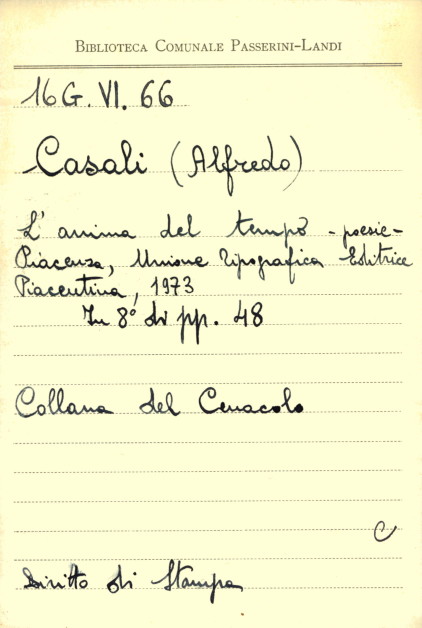 BIBLIOTECA COMUNALE PASSERINI-LANDI
16 G. VI. 66
Casali (Alfredo)
L'anima del tempo - poesie -
Piacenza, Unione Tipografica Editrice
Piacentina, 1973
In 8° di pp. 48
Collana del Cenacolo
C
Diritto di Stampa